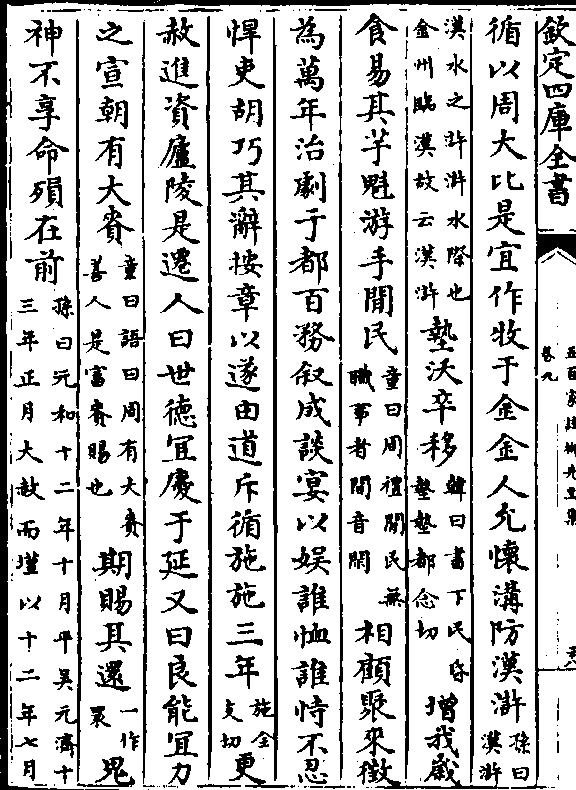 欽定四庫全書
五百家註柳先生集
卷九
循以周大比是宜作牧于金金人允懷溝防漢滸孫曰漢滸
漢水之滸滸水降也金州臨漢故云漢滸墊沃卒移韓曰書下民昏墊墊都念切增我歲
食易其芋魁游手閒民童曰周禮閒民無職事者閒音閑相顧聚來徵
為萬年治劇于都百務叙成談宴以娛誰恤誰恃不忍
悍吏胡巧其辭按章以遂由道斥循施施三年施余支切更
赦進資廬陵是遷人曰世德宜慶于延又曰良能宜力
之宣朝有大賚童曰語曰周有大賚善人是富賚賜也期賜其還一作眾鬼
神不享命殞在前孫曰元和十二年十月平吳元濟十三年正月大赦而墐以十二年七月